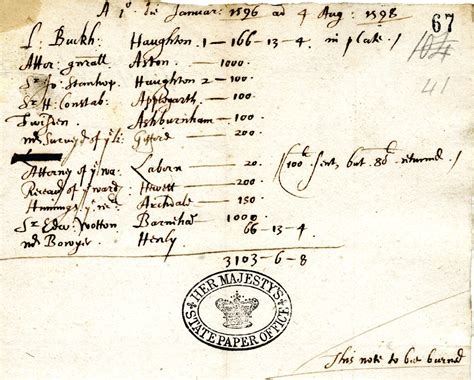 A 1º die Januar: 1596 ad 4 Aug: 1598
67
164
41
L: Buckh: Haughton 1 — 166-13-4 in plate /
Attor: gnrall Aston — 1000.
Sr Jo: Stanhop Haughton 2 — 100.
Sr H. Constab: Applegarth — 100.
Twisden Ashburnham — 100.
mr Survey of ye li: Gifford — 200.
Attorny of ye wa: Laborn — 20. (100l sent, but 80l returned /
Receav of ye ward: Hewett — 200.
Hunings ye Archdale — 150
Sr Edw: Wotton 1000
mr Bowyer Henly 66-13-4
3103-6-8
HER MAJESTY'S STATE PAPER OFFICE
This note to be burned